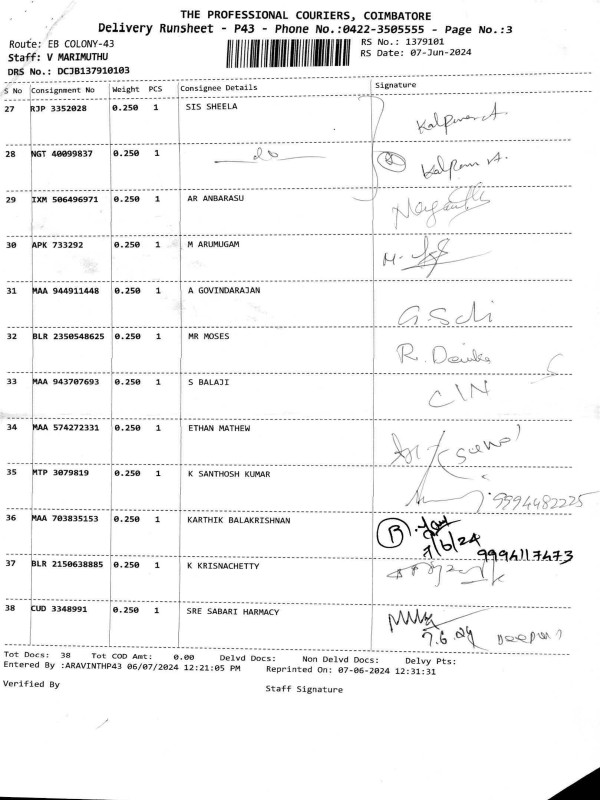 THE PROFESSIONAL COURIERS, COIMBATORE
Delivery Runsheet - P43 - Phone No.:0422-3505555 - Page No.:3
Route: EB COLONY-43 RS No.: 1379101
Staff: V MARIMUTHU RS Date: 07-Jun-2024
DRS No.: DCJB137910103
S No Consignment No Weight PCS Consignee Details Signature
27 RJP 3352028 0.250 1 SIS SHEELA
28 NGT 40099837 0.250 1 do
29 IXM 506496971 0.250 1 AR ANBARASU
30 APK 733292 0.250 1 M ARUMUGAM
31 MAA 944911448 0.250 1 A GOVINDARAJAN
32 BLR 2350548625 0.250 1 MR MOSES
33 MAA 943707693 0.250 1 S BALAJI
34 MAA 574272331 0.250 1 ETHAN MATHEW
35 MTP 3079819 0.250 1 K SANTHOSH KUMAR 9994482225
36 MAA 703835153 0.250 1 KARTHIK BALAKRISHNAN
7/6/24 9994117473
37 BLR 2150638885 0.250 1 K KRISNACHETTY
38 CUD 3348991 0.250 1 SRE SABARI HARMACY
7.6.24
Tot Docs: 38 Tot COD Amt: 0.00 Delvd Docs: Non Delvd Docs: Delvy Pts:
Entered By :ARAVINTHP43 06/07/2024 12:21:05 PM Reprinted On: 07-06-2024 12:31:31
Verified By Staff Signature